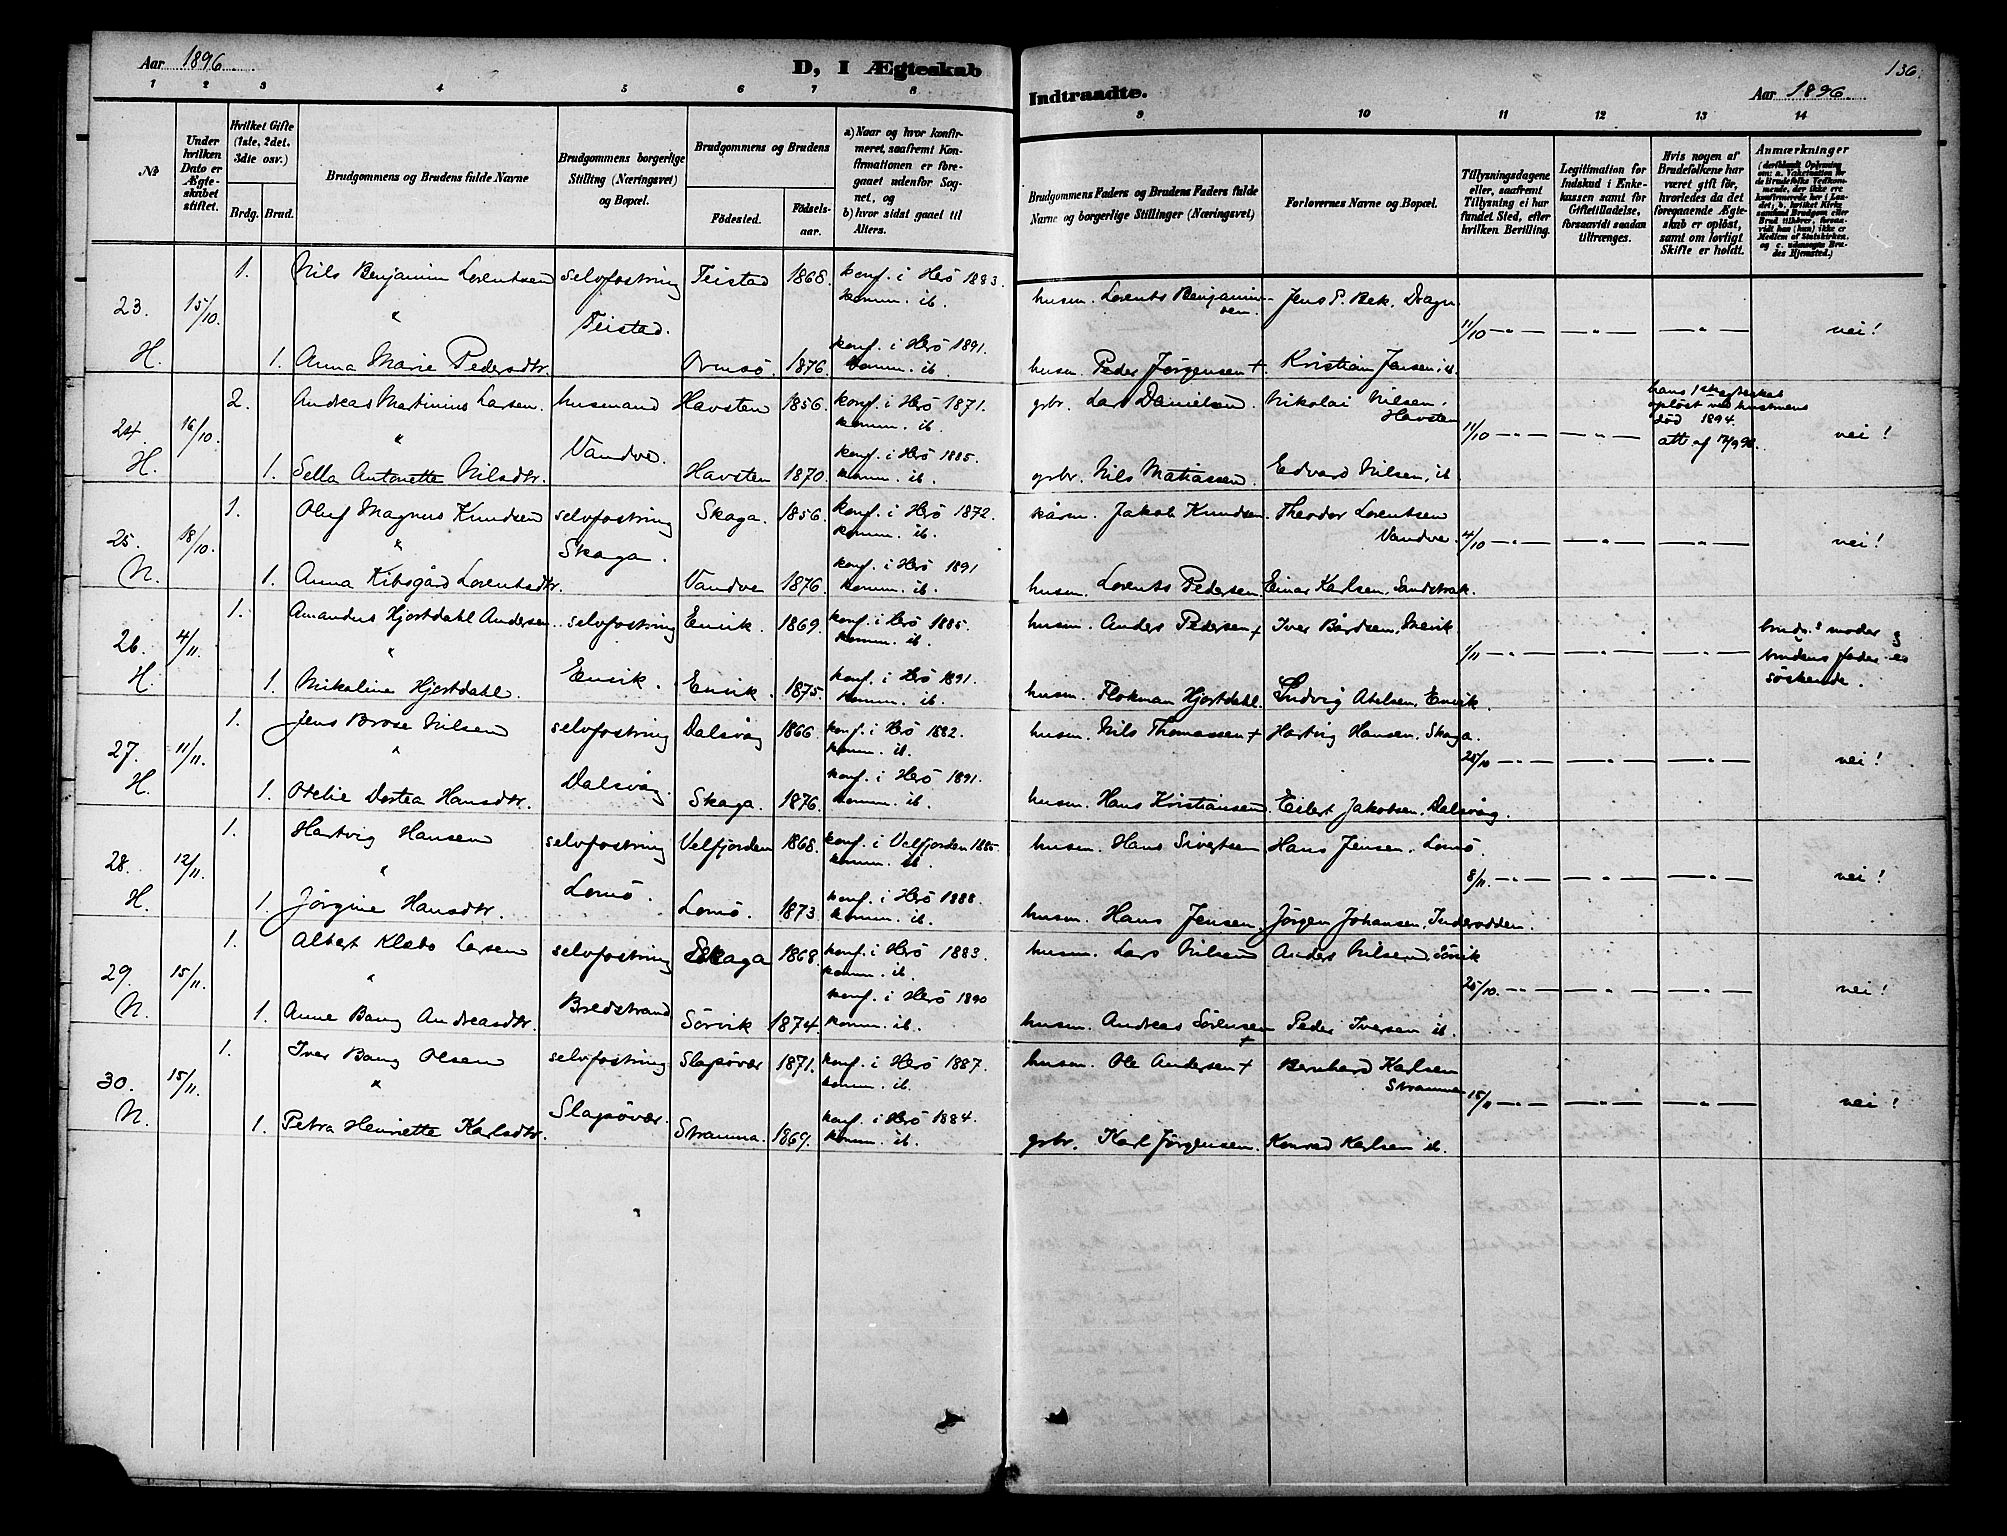 Aar 1896.
D, I Ægteskab
1 2 3 4 5 6 7 8
№
Under hvilken Dato er Ægteskabet stiftet.
Hvilket Gifte (1ste, 2det, 3die osv.)
Brdg. Brud.
Brudgommens og Brudens fulde Navne
Brudgommens borgerlige Stilling (Næringsvei) og Bopæl.
Brudgommens og Brudens
Födested. Födselsaar.
a) Naar og hvor konfirmeret, saafremt Konfirmationen er foregaaet udenfor Sognet, og
b) hvor sidst gaaet til Alters.
23. 15/10. H.
1. Nils Benjamin Lorentsen selvfostring Teistad 1868. konf. i Herö 1883.
komm. ib.
" Teistad.
1. Anna Marie Pedersdtr. 1876. konf. i Herö 1891.
komm. ib.
24. 16/10. H.
2. Andreas Martinius Larsen. husmand Havsten 1856. konf. i Herö 1871.
komm. ib.
" Vandve.
1. Sella Antonette Nilsdtr. Havsten 1870. konf. i Herö 1885.
komm. ib.
25. 18/10. N.
1. Oluf Magnus Knudsen selvfostring Skaga. 1856. konf. i Herö 1872.
komm. ib.
" Skaga.
1. Anna Kibsgård Lorentsdtr. Vandve 1876. konf. i Herö 1891
komm. ib.
26. 4/11. H.
1. Amandus Hjortdahl Andersen. selvfostring Envik. 1869. konf. i Herö 1885.
komm. ib.
" Envik.
1. Nikoline Hjortdahl. Envik. 1875. konf. i Herö 1891.
komm. ib.
27. 11/11. H.
1. Jens Brose Nilsen selvfostring Dalsvåg 1866. konf. i Herö 1882.
komm. ib.
" Dalsvåg
1. Otelie Dortea Hansdtr. Skaga. 1876. konf. i Herö 1891.
komm. ib.
28. 12/11. H.
1. Hartvig Hansen selvfostring Velfjorden 1868. konf. i Velfjorden 1885.
komm. ib.
" Lomö.
1. Jörgine Hansdtr. Lomö. 1873. konf. i Herö 1888.
komm. ib.
29. 15/11. N.
1. Albert Klæbo Larsen selvfostring Skaga 1868. konf. i Herö 1883.
komm. ib.
" Bredstrand
1. Anne Bang Andreasdtr. Sörvik 1874. konf. i Herö 1890
komm. ib.
30. 15/11. N.
1. Iver Bang Olsen selvfostring Slapövær 1871. konf. i Herö 1887.
komm. ib.
" Slapövær.
1. Petra Henriette Karlsdtr. Stramma. 1869. konf. i Herö 1884.
komm. ib.
Indtraadte.
136.
Aar 1896.
9 10 11 12 13 14
Brudgommens Faders og Brudens Faders fulde Navne og borgerlige Stillinger (Næringsvei)
Forlovernes Navne og Bopæl.
Tillysningsdagene eller, saafremt Tillysning ei har fundet Sted, efter hvilken Bevilling.
Legitimation for Indskud i Enkekassen samt for Giftetilladelse, forsaavidt saadan tiltrænges.
Hvis nogen af Brudefolkene har været gift för, hvorledes da det foregaaende Ægteskab er oplöst, samt om lovligt Skifte er holdt.
Anmærkninger
husm. Lorents Benjaminsen. Jens P. Bek. Dragn
11/10 — " — — " — — " — nei!
husm. Peder Jörgensen + Kristian Jensen, ib.
grbr. Lars Danielsen. Nikolai Nilsen, Havsten
11/10 — " — — " — hans 1ste ægteskab oplöst ved hustruens död 1894. att. af nei!
grbr. Nils Matiassen. Edvard Nilsen, ib
kårm. Jakob Knudsen. Theodor Lorentsen Vandve.
4/10 — " — — " — — " — nei!
husm. Lorents Pedersen. Einar Karlsen, Sandstrak.
husm. Anders Pedersen + Iver Bårdsen,
1/11 — " — — " — — " — brudg.s moder og brudens fader er söskende.
husm. Flokman Hjortdahl. Ludvig Abelsen, Envik.
husm. Nils Thomassen + Hartvig Hansen. Skaga.
25/10 — " — — " — — " — nei!
husm. Hans Kristiansen. Eilert Jakobsen, Dalsvåg.
husm. Hans Sivertsen Hans Jensen, Lomö.
8/11. — " — — " — — " — nei!
husm. Hans Jensen. Jörgen Johansen, Inderodden.
husm. Lars Nilsen Anders Nilsen, Sörvik
25/10. — " — — " — — " — nei!
husm. Andreas Sörensen + Peder Iversen ib.
husm. Ole Andersen + Bernhard Karlsen Stramma
15/11 — " — — " — — " — nei!
grbr. Karl Jörgensen. Konrad Karlsen ib.